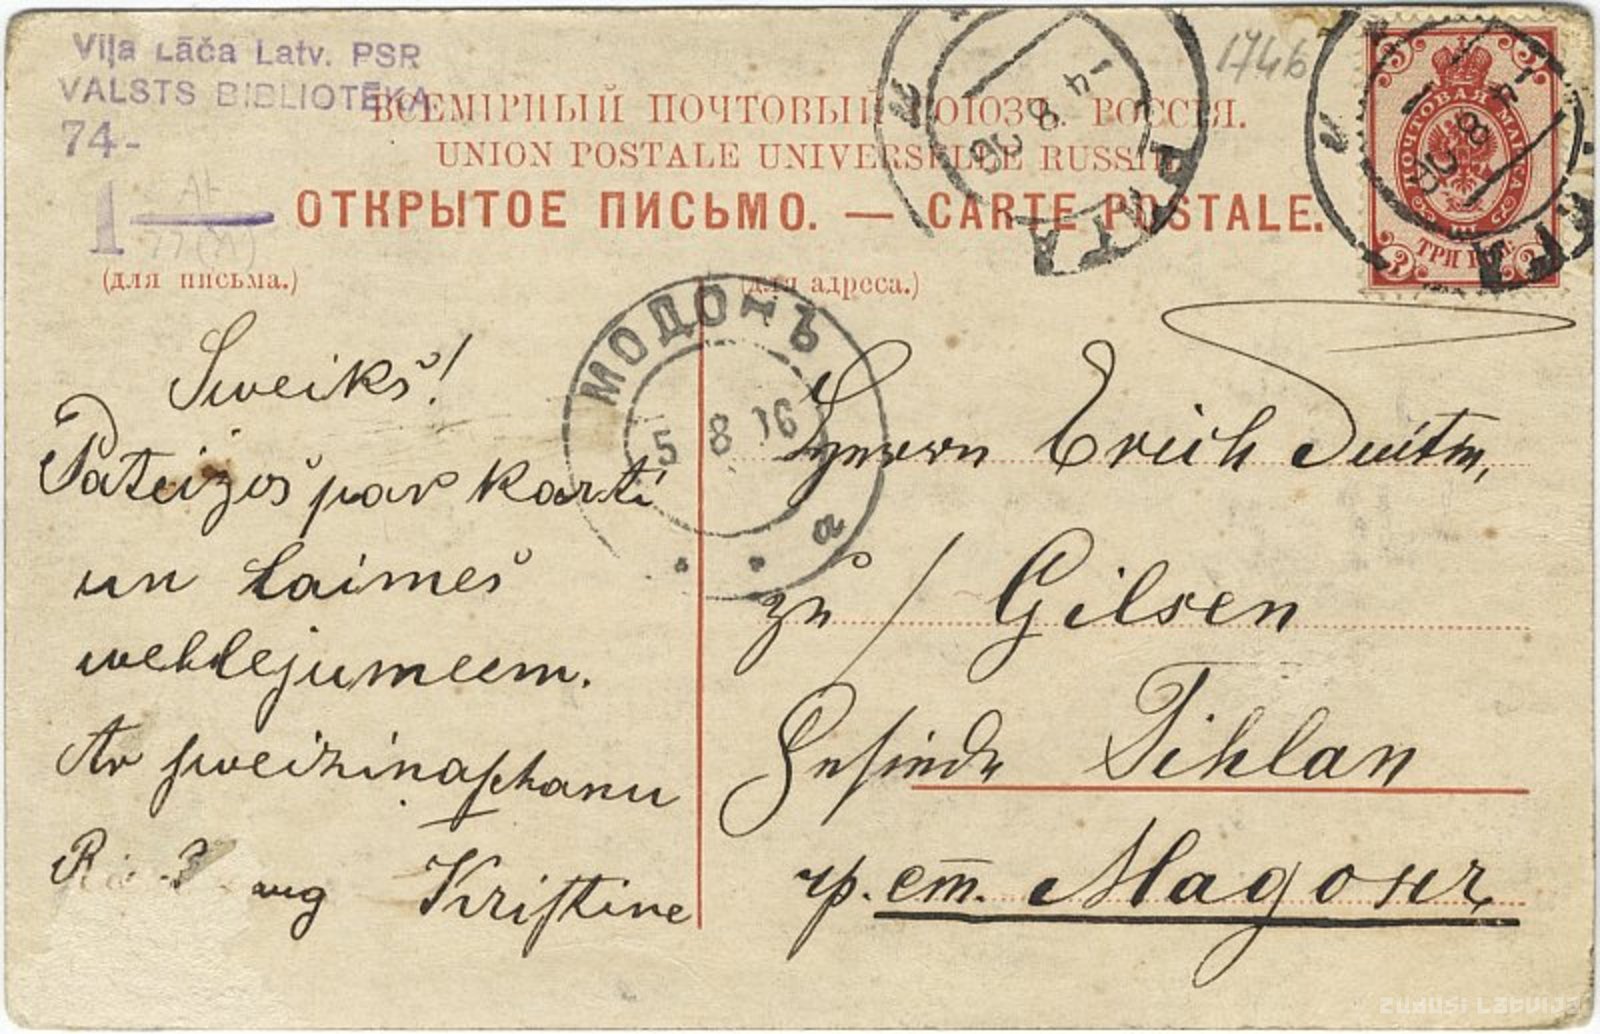 Viļa Lāča Latv. PSR
VALSTS BIBLIOTĒKA
74-
1
1746
ВСЕМІРНЫЙ ПОЧТОВЫЙ СОЮЗЪ. РОССІЯ.
UNION POSTALE UNIVERSELLE RUSSIE
ОТКРЫТОЕ ПИСЬМО. — CARTE POSTALE.
(для письма.)
(для адреса.)
РИГА
4 8
РИГА
4 8
ПОЧТОВАЯ МАРКА
ТРИ КОП.
3 3
МОДОНЪ
5 8 16
а
Sweiks!
Pateizos par karti
un laimes
wehlejumeem.
Ar sweizinaschanu
aug Kristine
Herrn Erich
zu / Gilsen
Gesinde Tihlan
чр. ст. Мадонъ
ZUDUSI LATVIJA